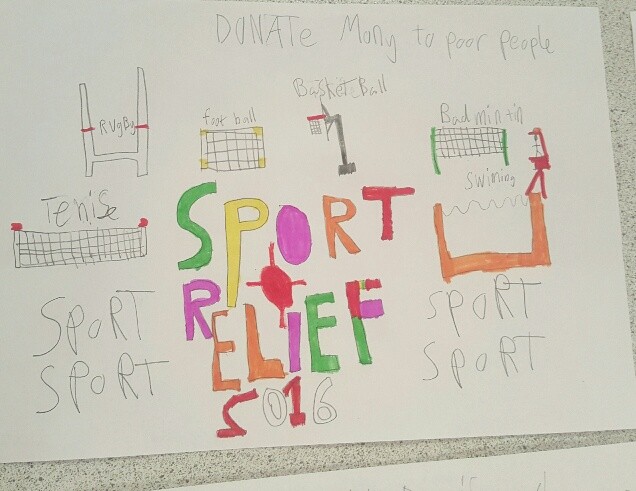 DONATE Mony to poor people
RUGBY
foot ball
BasketBall
Badmintin
Swiming
Tenise
SPORT
RELIEF
2016
SPORT
SPORT
SPORT
SPORT